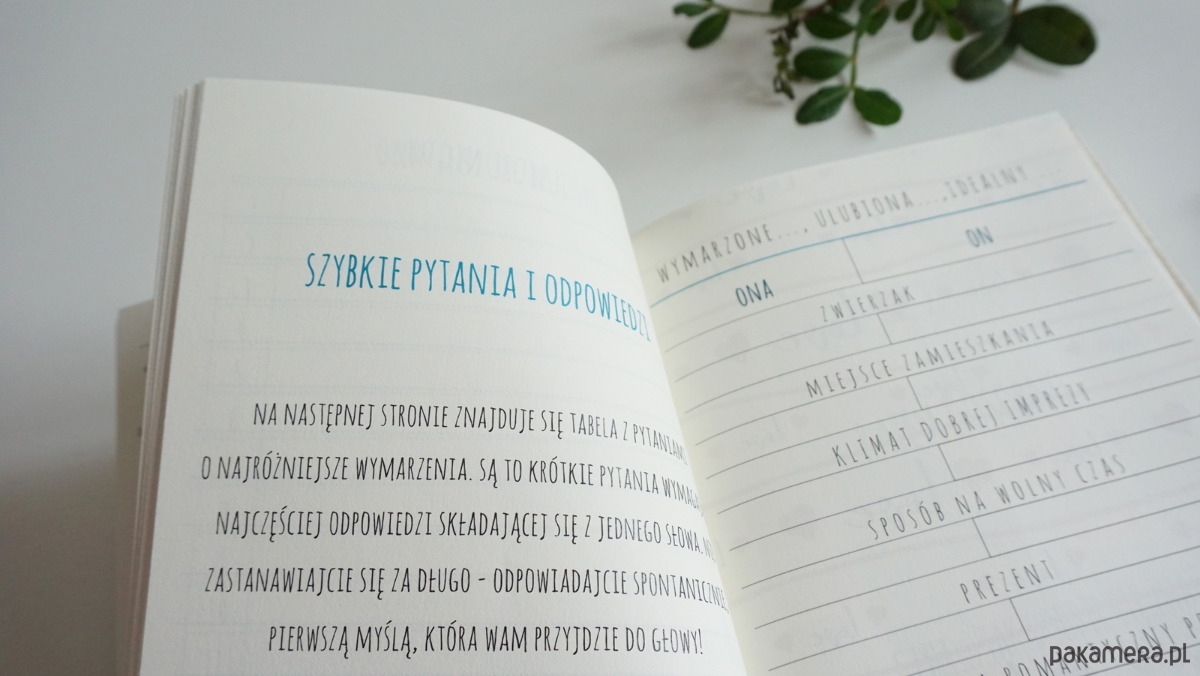 SZYBKIE PYTANIA I ODPOWIEDZI
NA NASTĘPNEJ STRONIE ZNAJDUJE SIĘ TABELA Z PYTANIAMI
O NAJRÓŻNIEJSZE WYMARZENIA. SĄ TO KRÓTKIE PYTANIA
NAJCZĘŚCIEJ ODPOWIEDZI SKŁADAJĄCEJ SIĘ Z JEDNEGO SŁOWA.
ZASTANAWIAJCIE SIĘ ZA DŁUGO - ODPOWIADAJCIE SPONTANICZNIE,
PIERWSZĄ MYŚLĄ, KTÓRA WAM PRZYJDZIE DO GŁOWY!
WYMARZONE..., ULUBIONA...,IDEALNY ...
ONA ON
ZWIERZAK
MIEJSCE ZAMIESZKANIA
KLIMAT DOBREJ IMPREZY
SPOSÓB NA WOLNY CZAS
PREZENT
pakamera.pl